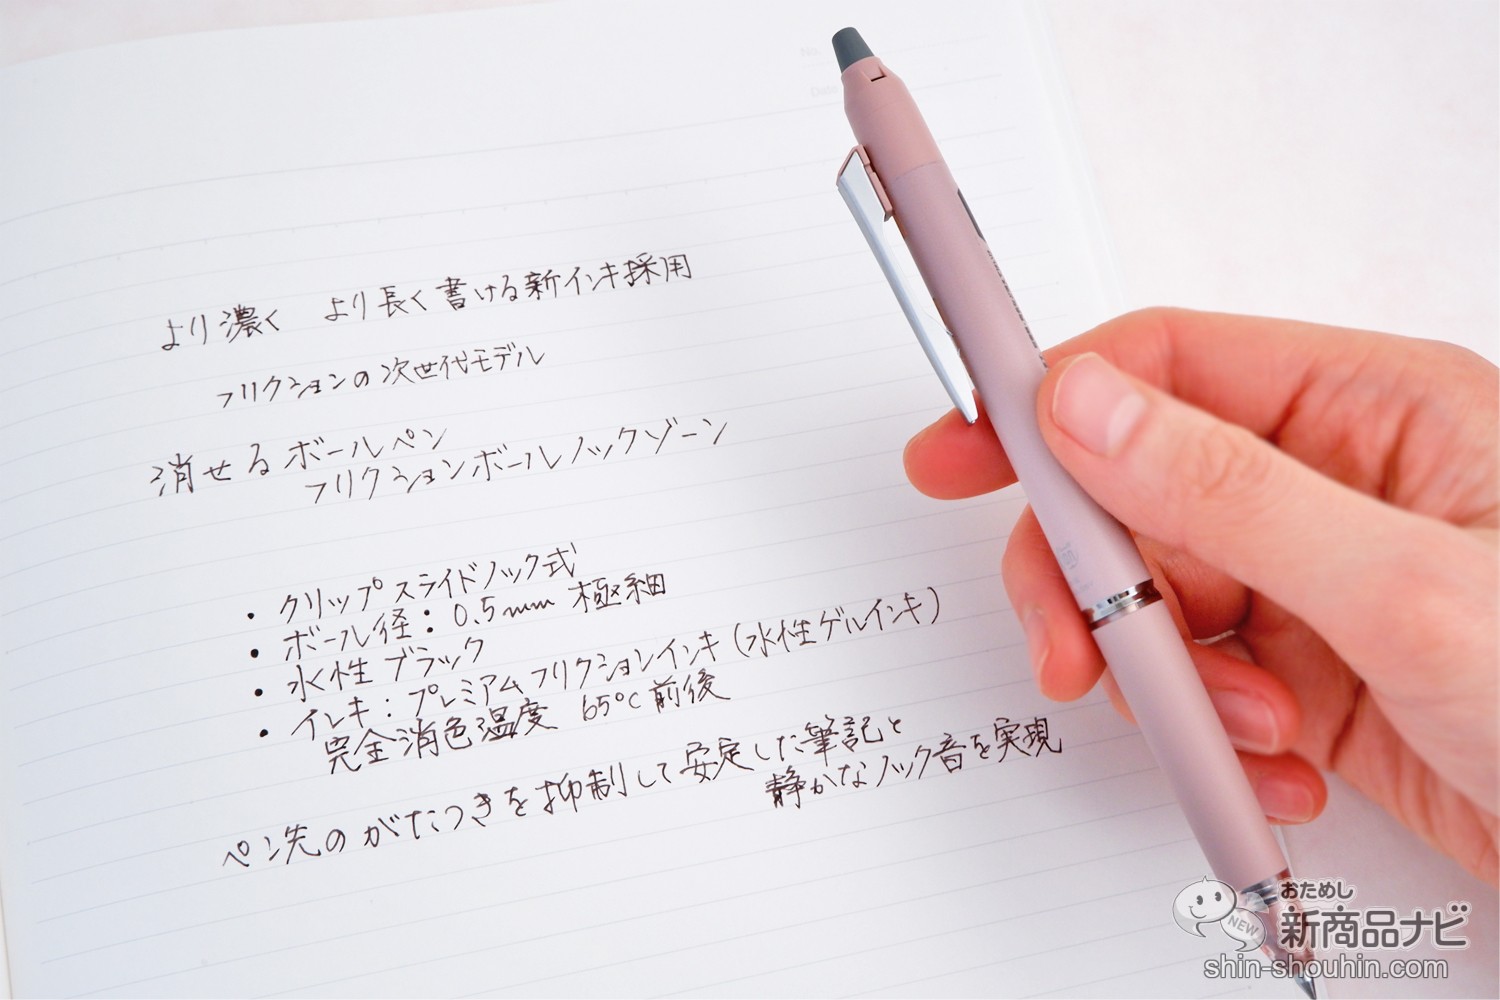 より濃く　より長く書ける新インキ採用
フリクションの次世代モデル
消せるボールペン
フリクションボールノックゾーン
・クリップスライドノック式
・ボール径：0.5mm 極細
・水性ブラック
・インキ：プレミアムフリクションインキ（水性ゲルインキ）
完全消色温度 65℃前後
ペン先のがたつきを抑制して安定した筆記と
静かなノック音を実現
No.
Date
おためし
新商品ナビ
NEW
shin-shouhin.com